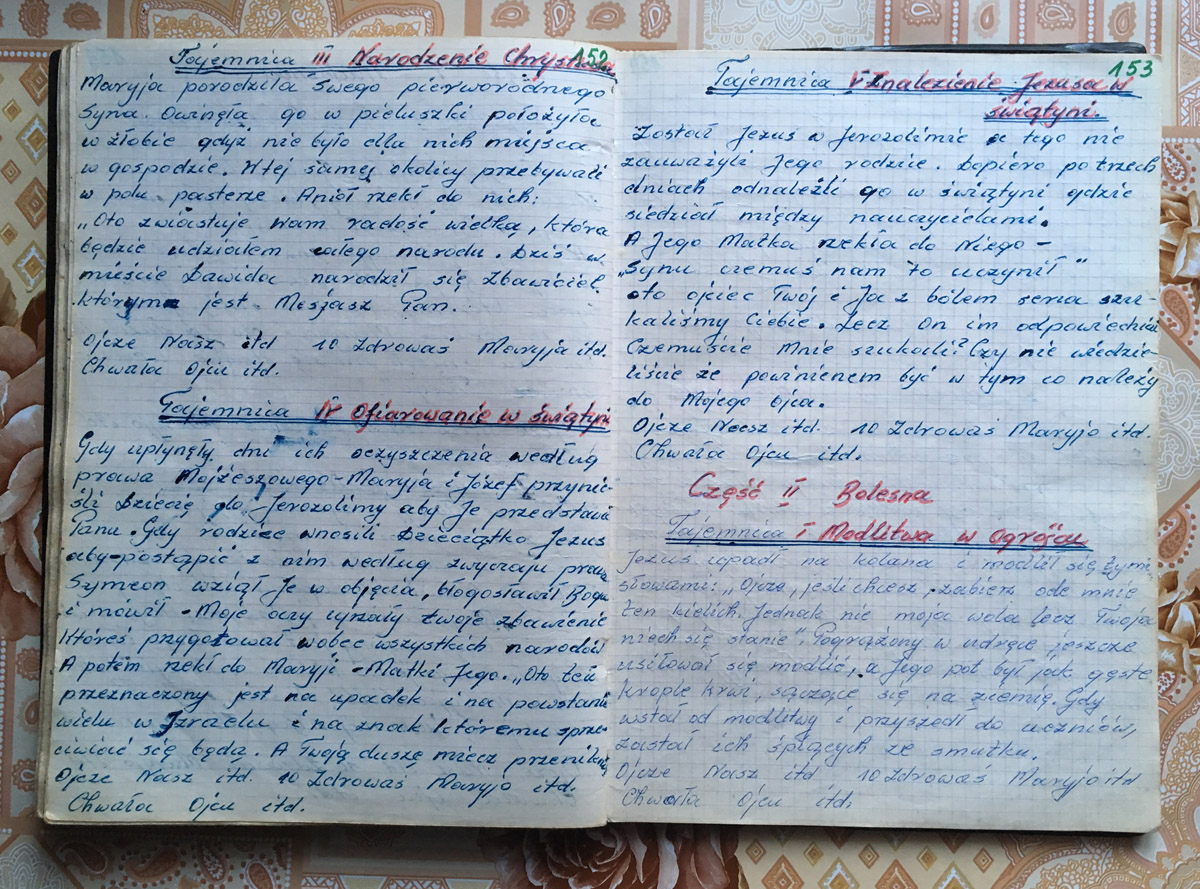 152
Tajemnica III Narodzenie Chrystusa
Maryja porodziła swego pierworodnego
Syna. Owinęła go w pieluszki położyła
w żłobie gdyż nie było dla nich miejsca
w gospodzie. W tej samej okolicy przebywali
w polu pasterze. Anioł rzekł do nich:
„Oto zwiastuje wam radość wielką, która
będzie udziałem całego narodu. Dziś w
mieście Dawida narodził się Zbawiciel,
którym jest Mesjasz Pan.
Ojcze Nasz itd 10 Zdrowaś Maryja itd.
Chwała Ojcu itd.
Tajemnica IV Ofiarowanie w świątyni
Gdy upłynęły dni ich oczyszczenia według
prawa Mojżeszowego - Maryja i Józef przynie-
śli Dziecię do Jerozolimy aby Je przedstawić
Panu. Gdy rodzice wnosili Dzieciątko Jezus
aby postąpić z nim według zwyczaju prawa
Symeon wziął Je w objęcia, błogosławił Boga
i mówił - Moje oczy ujrzały twoje zbawienie
któreś przygotował wobec wszystkich narodów
A potem rzekł do Maryji - Matki Jego. „Oto ten
przeznaczony jest na upadek i na powstanie
wielu w Izraelu i na znak któremu sprze-
ciwiać się będą. A Twoją duszę miecz przeniknie
Ojcze Nasz itd. 10 Zdrowaś Maryjo itd.
Chwała Ojcu itd.
153
Tajemnica V Znalezienie Jezusa w
świątyni.
Został Jezus w Jerozolimie a tego nie
zauważyli Jego rodzice. Dopiero po trzech
dniach odnaleźli go w świątyni gdzie
siedział między nauczycielami.
A Jego Matka rzekła do Niego -
„Synu czemuś nam to uczynił"
oto ojciec Twój i Ja z bólem serca szu-
kaliśmy Ciebie. Lecz On im odpowiedział
Czemuście Mnie szukali? Czy nie wiedzie-
liście że powinienem być w tym co należy
do Mojego Ojca.
Ojcze Nasz itd. 10 Zdrowaś Maryjo itd.
Chwała Ojcu itd.
Część II Bolesna
Tajemnica I Modlitwa w Ogrójcu
Jezus upadł na kolana i modlił się tymi
słowami: „Ojcze, jeśli chcesz, zabierz ode mnie
ten kielich. Jednak nie moja wola lecz Twoja
niech się stanie". Pogrążony w udręce jeszcze
usiłował się modlić, a Jego pot był jak gęste
krople krwi, sączące się na ziemię. Gdy
wstał od modlitwy i przyszedł do uczniów,
zastał ich śpiących ze smutku.
Ojcze Nasz itd 10 Zdrowaś Maryjo itd
Chwała Ojcu itd.